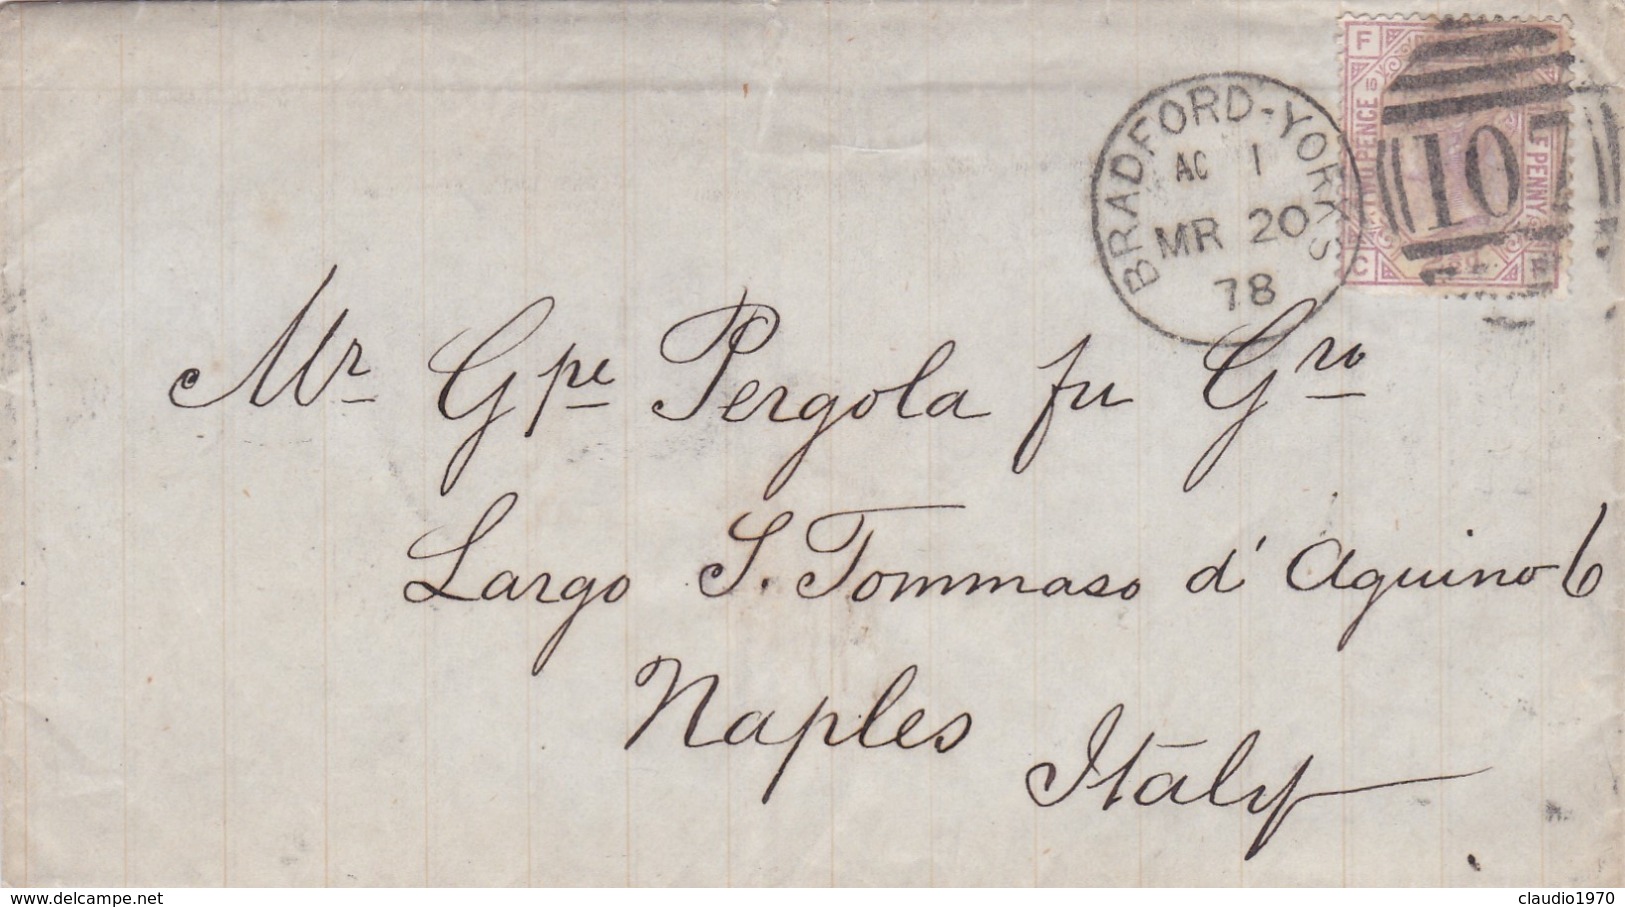 BRADFORD-YORKS
AC 1
MR 20
78
F
PENCE
LF PENNY
C
107
Mr Gpe Pergola fu Gro
Largo S. Tommaso d' Aquino 6
Naples
Italy
www.delcampe.net
claudio1970